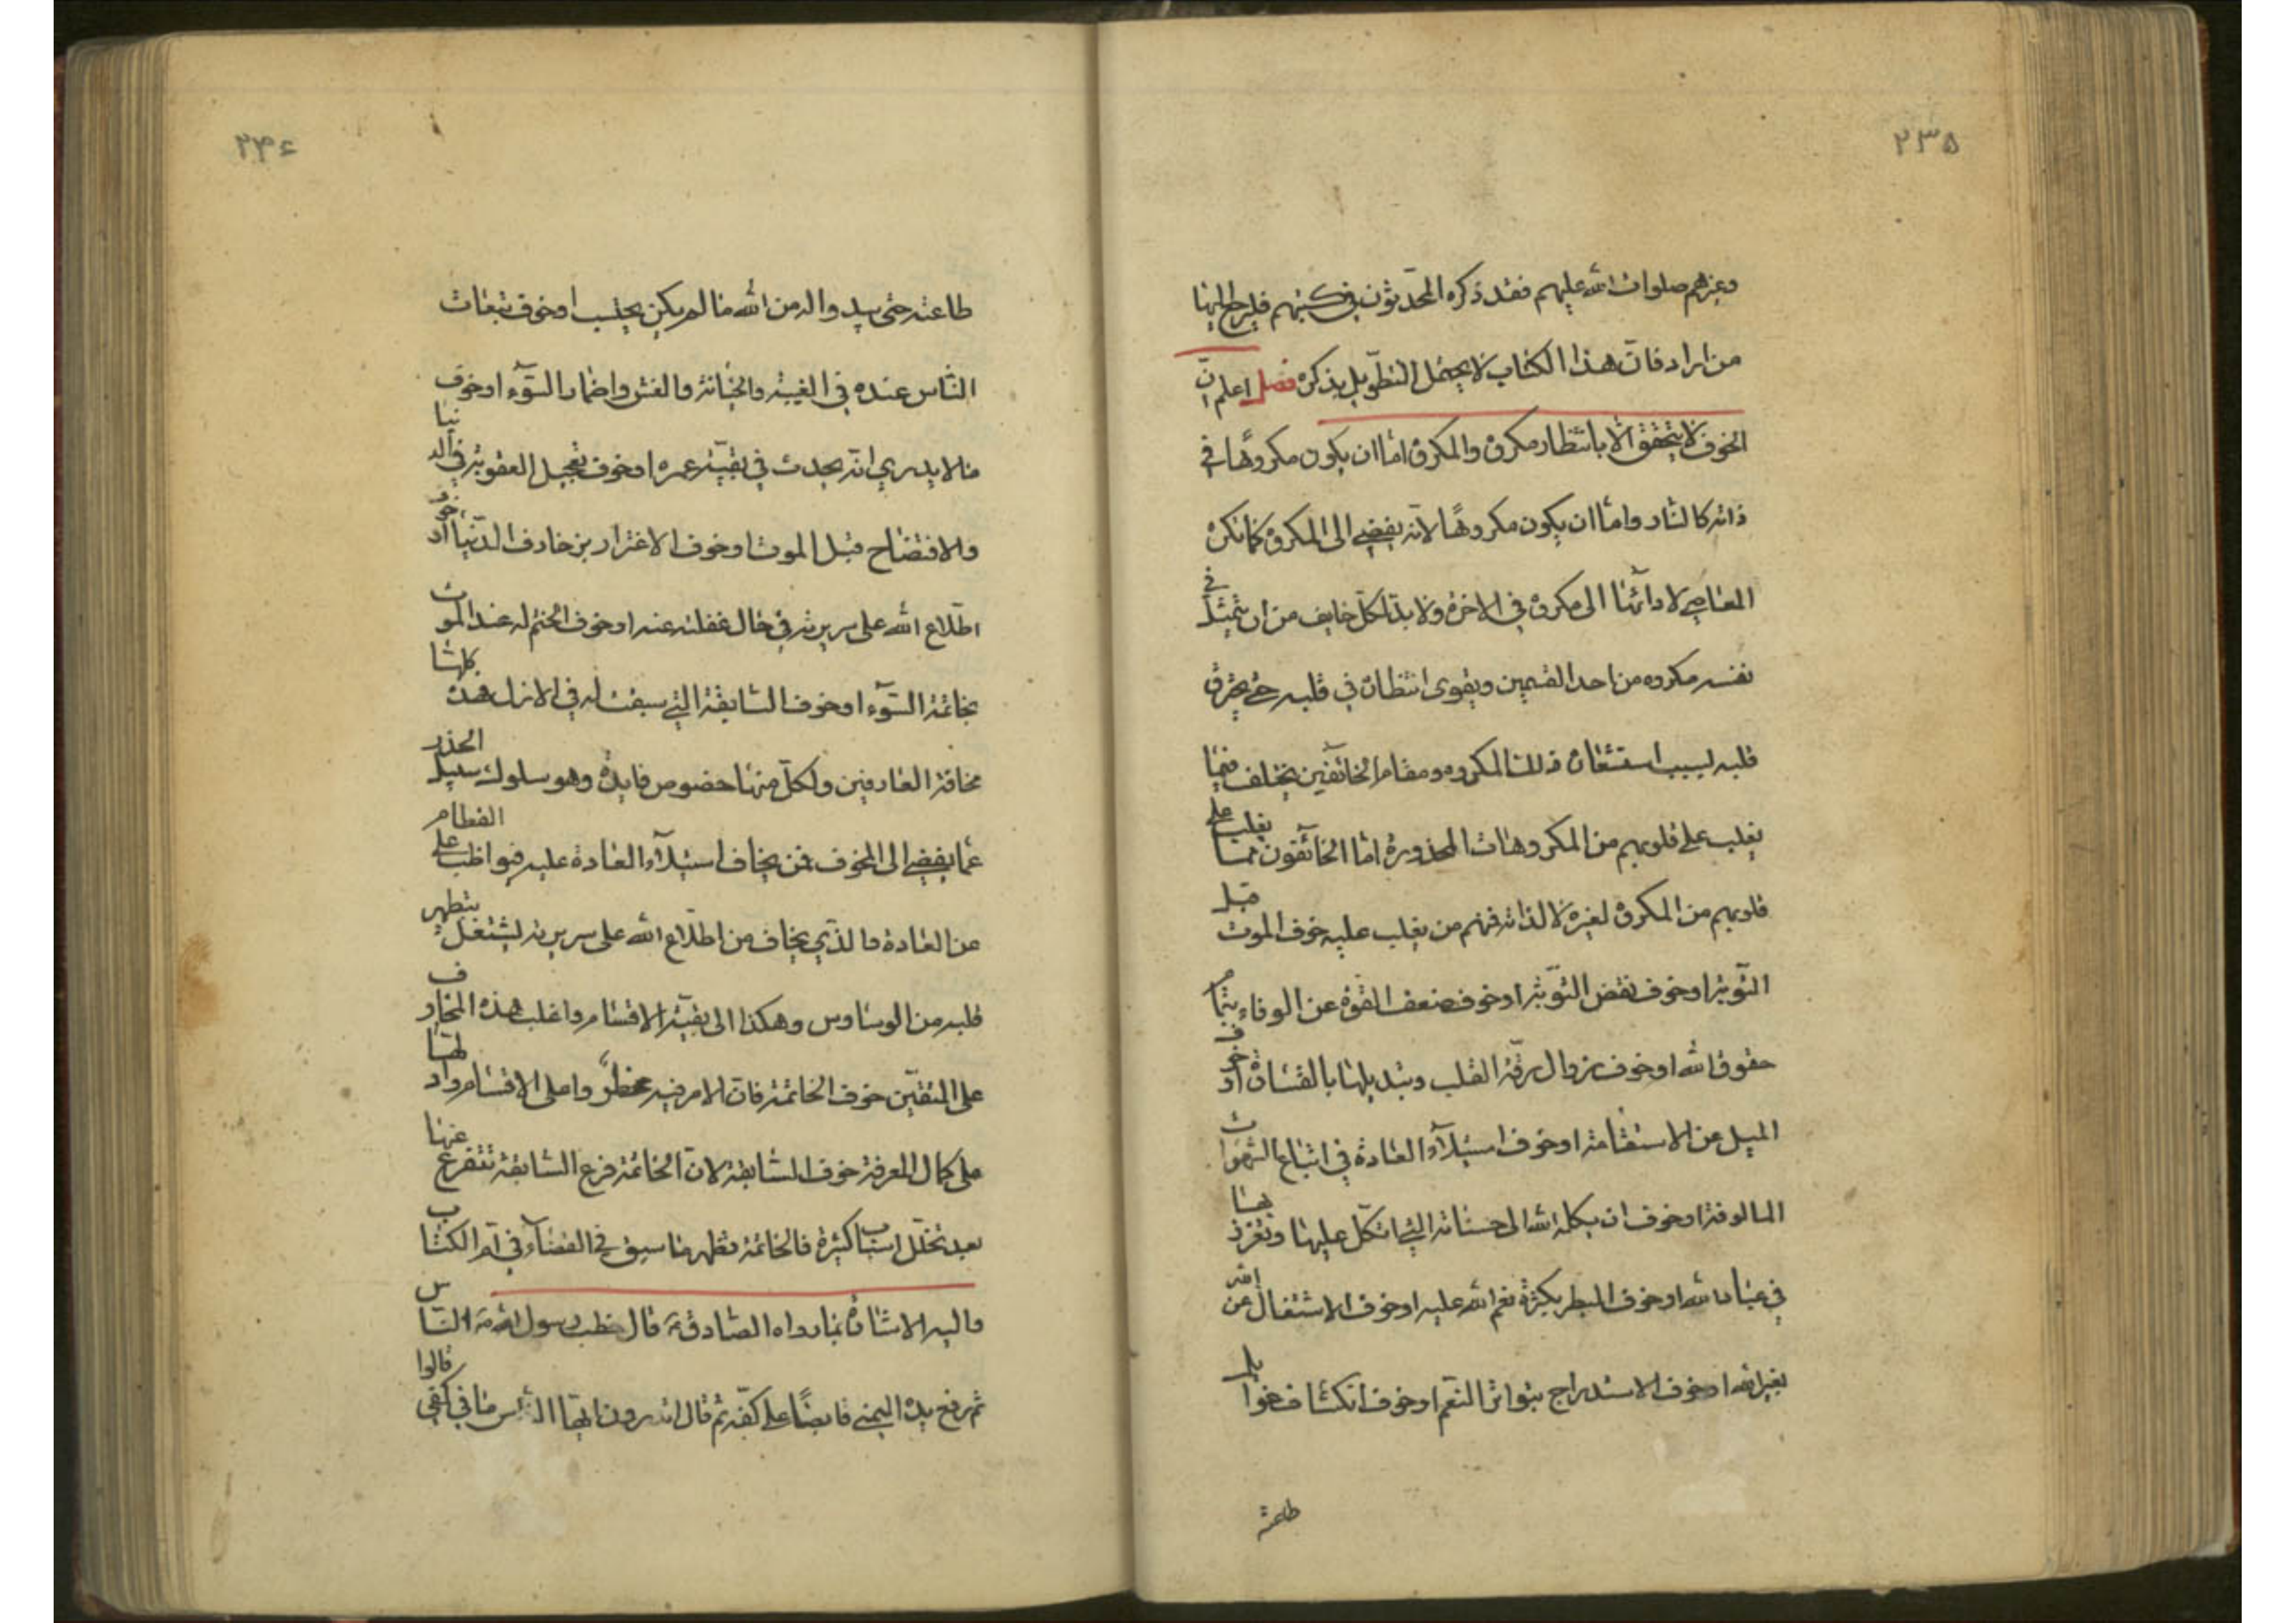 ٢٣٥
وغيرهم صلوات الله عليهم فقد ذكره المحدّثون في كتبهم فليرجع اليها
من اراد فانّ هذا الكتاب لا يحتمل التطويل بذكره فصل اعلم انّ
الخوف لا يتحقق الّا بانتظار مكروه والمكروه امّا ان يكون مكروهًا في
ذاته كالنار وامّا ان يكون مكروهًا لانّه يفضي الى المكروه كما تكره
المعاصي لادائها الى مكروه في الاخرة ولا بدّ لكلّ خايف من ان يتمثّل في
نفسه مكروه من احد القسمين ويقوى انتظاره في قلبه حتى يحرق
قلبه بسبب استشعاره ذلك المكروه ومقام الخائفين يختلف فيما
يغلب على قلوبهم من المكروهات المحذورة امّا الخائفون ممّا يغلب على
قلوبهم من المكروه لغيره لا لذاته فمنهم من يغلب عليه خوف الموت قبل
التّوبة او خوف نقض التّوبة او خوف ضعف القوة عن الوفاء بتمام
حقوق الله او خوف زوال رقّة القلب وتبديلها بالقساوة او خوف
الميل عن الاستقامة او خوف استيلآء العادة في اتباع الشهوات
المالوفة او خوف ان يكله الله الى حسناته التي اتكّل عليها وتعزّز بها
في عباد الله او خوف البطر بكثرة نعم الله عليه او خوف الاشتغال عن الله
بغير الله او خوف الاستدراج بتواتر النّعم او خوف انكشاف غوائل
طاعته
٢٣٤
طاعته حتى يبدو اله من الله ما لم يكن يحتسب او خوف تبعات
النّاس عنده في الغيبة والخيانة والغش واضمار السّوء او خوف
ما لا يدري انّه يحدث في بقيّة عمره او خوف تعجيل العقوبة في الدنيا
والافتضاح قبل الموت او خوف الاغترار بزخارف الدّنيا او خوف
اطّلاع الله على سريرته في حال غفلته عنه او خوف الختم له عند الموت
بخاتمة السّوء او خوف السّابقة التي سبقت له في الازل فهذه كلها
مخافة العارفين ولكلّ منها خصوص فايدة وهو سلوك سبيل الحذر
عمّا يفضي الى المخوف فمن يخاف استيلآء العادة عليه فيواظب على الفطام
عن العادة والذي يخاف من اطّلاع الله على سريرته ليشتغل بتطهير
قلبه من الوساوس وهكذا الى بقيّة الاقسام واغلب هذه المخاوف
على المتّقين خوف الخاتمة فانّ الامر فيه مخطر واعلى الاقسام وادلها
على كمال المعرفة خوف السّابقة لانّ الخاتمة فرع السّابقة تتفرع عنها
بعد تخلّل اسباب كثيرة فالخاتمة تظهر ما سبق في القضآء في امّ الكتاب
واليه الاشارة بما رواه الصّادق ع قال خطب رسول الله ص النّاس
ثم رفع يده اليمنى قابضًا على كفّه ثم قال اتدرون ايّها النّاس ما في كفي قالوا